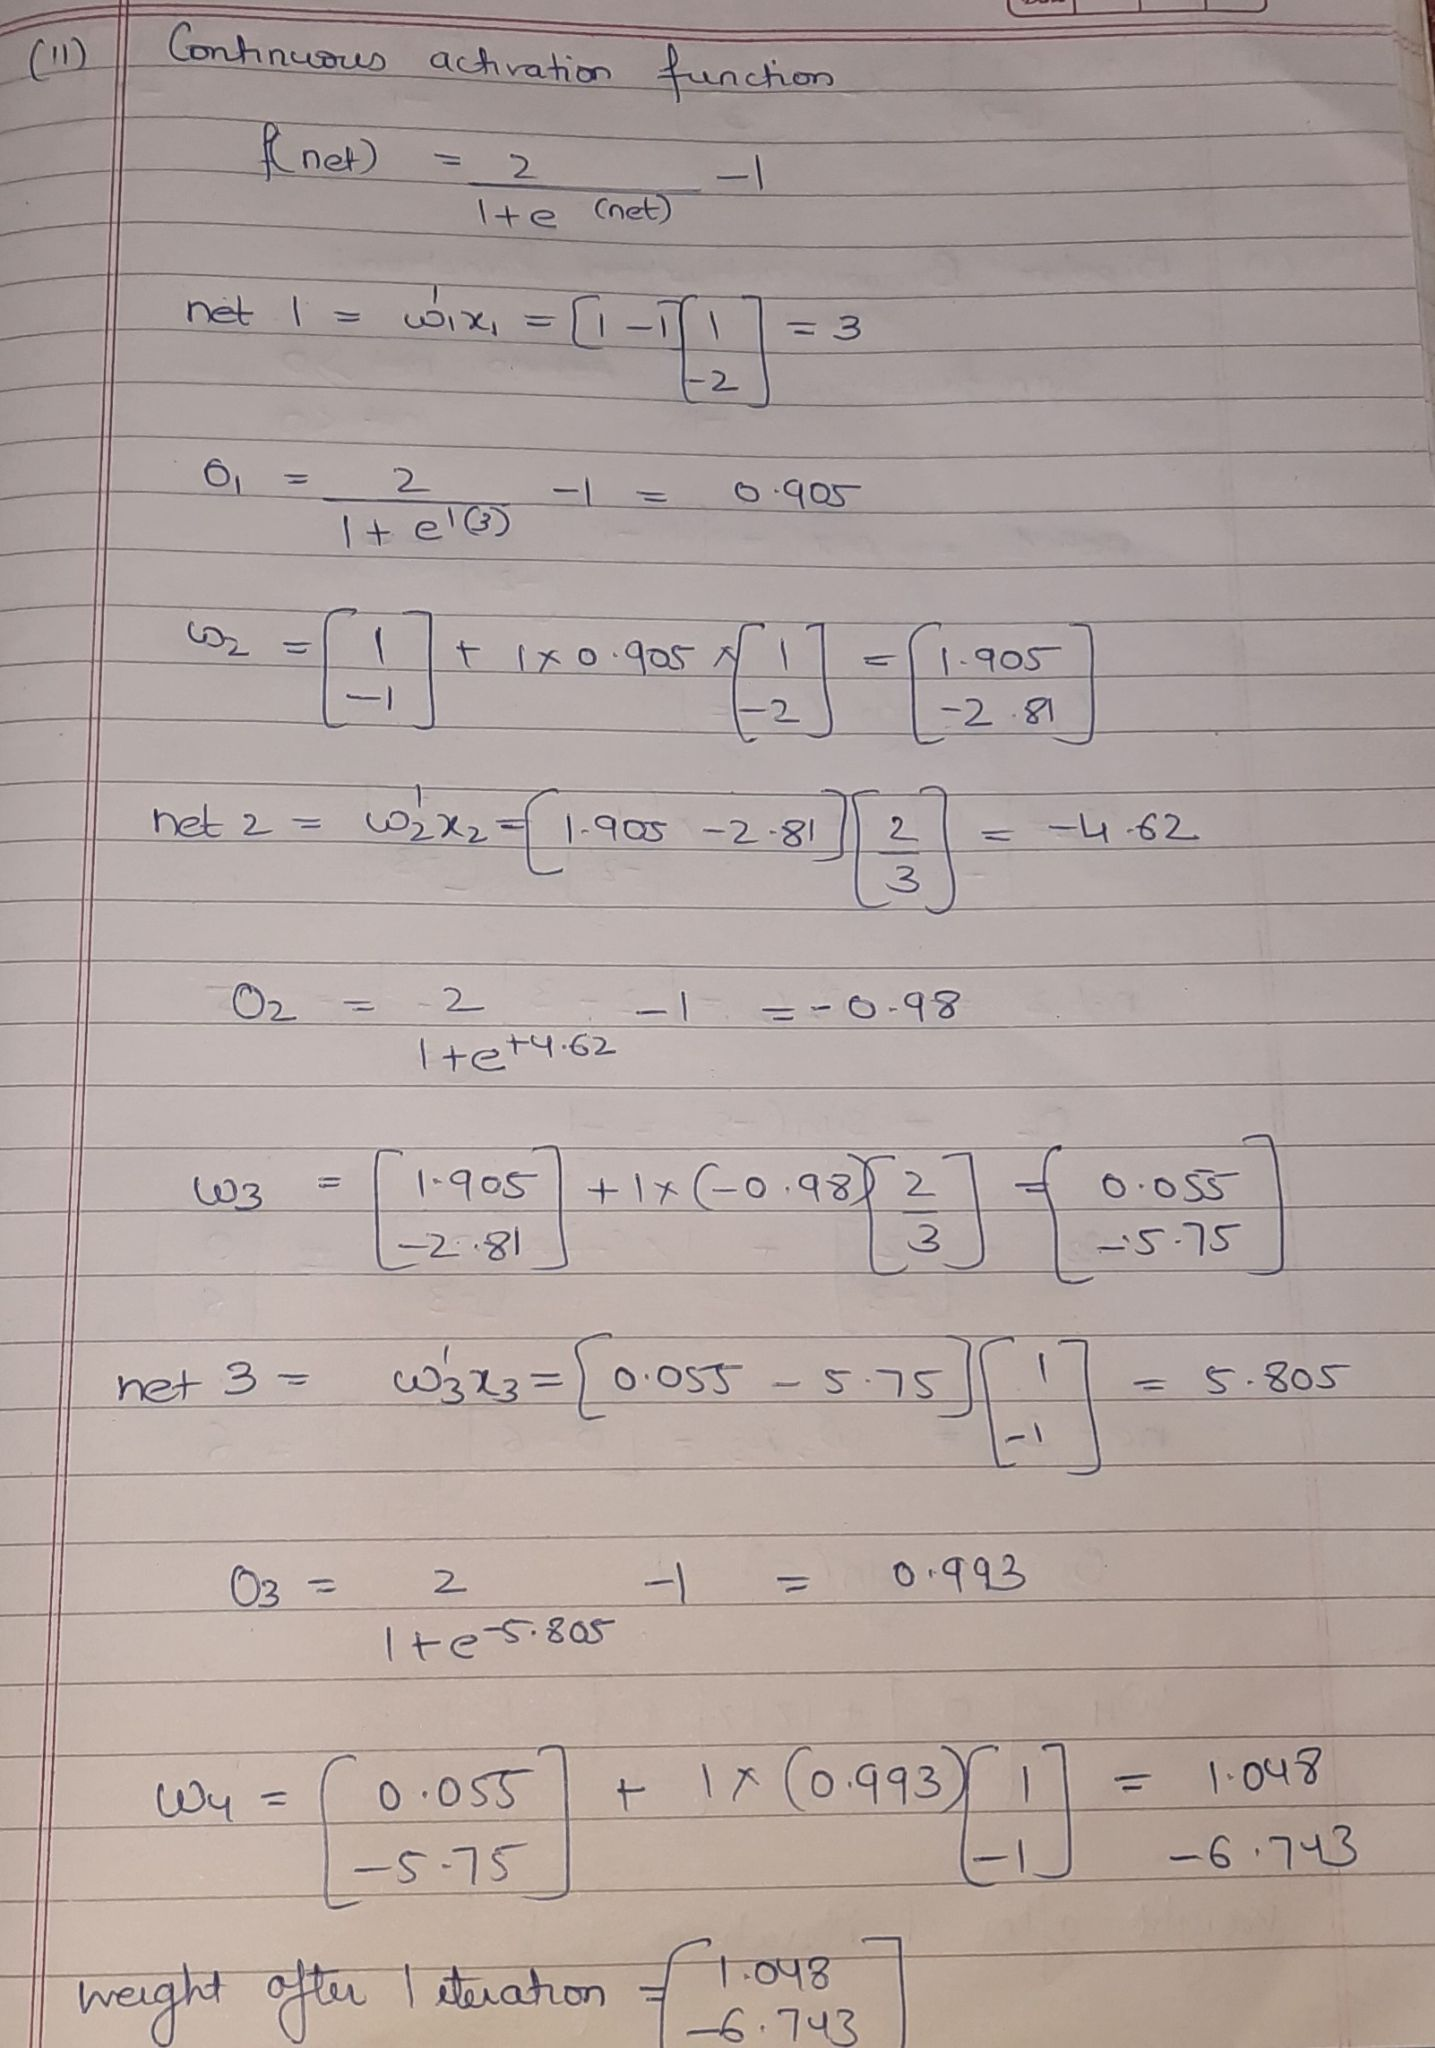 (11) Continuous activation function
f(net) = 2 / 1+e (net) -1
net 1 = w₁'x₁ = [1 -1] [1 -2] = 3
O₁ = 2 / 1+e^1(3) -1 = 0.905
w₂ = [1 -1] + 1x0.905 x [1 -2] = [1.905 -2.81]
net 2 = w₂'x₂ = [1.905 -2.81] [2 3] = -4.62
O₂ = 2 / 1+e^+4.62 -1 = -0.98
w3 = [1.905 -2.81] + 1x(-0.98) [2 3] = [0.055 -5.75]
net 3 = w'3x3 = [0.055 -5.75] [1 -1] = 5.805
O3 = 2 / 1+e^-5.805 -1 = 0.993
w4 = [0.055 -5.75] + 1x(0.993) [1 -1] = 1.048 -6.743
weight after 1 iteration = [1.048 -6.743]